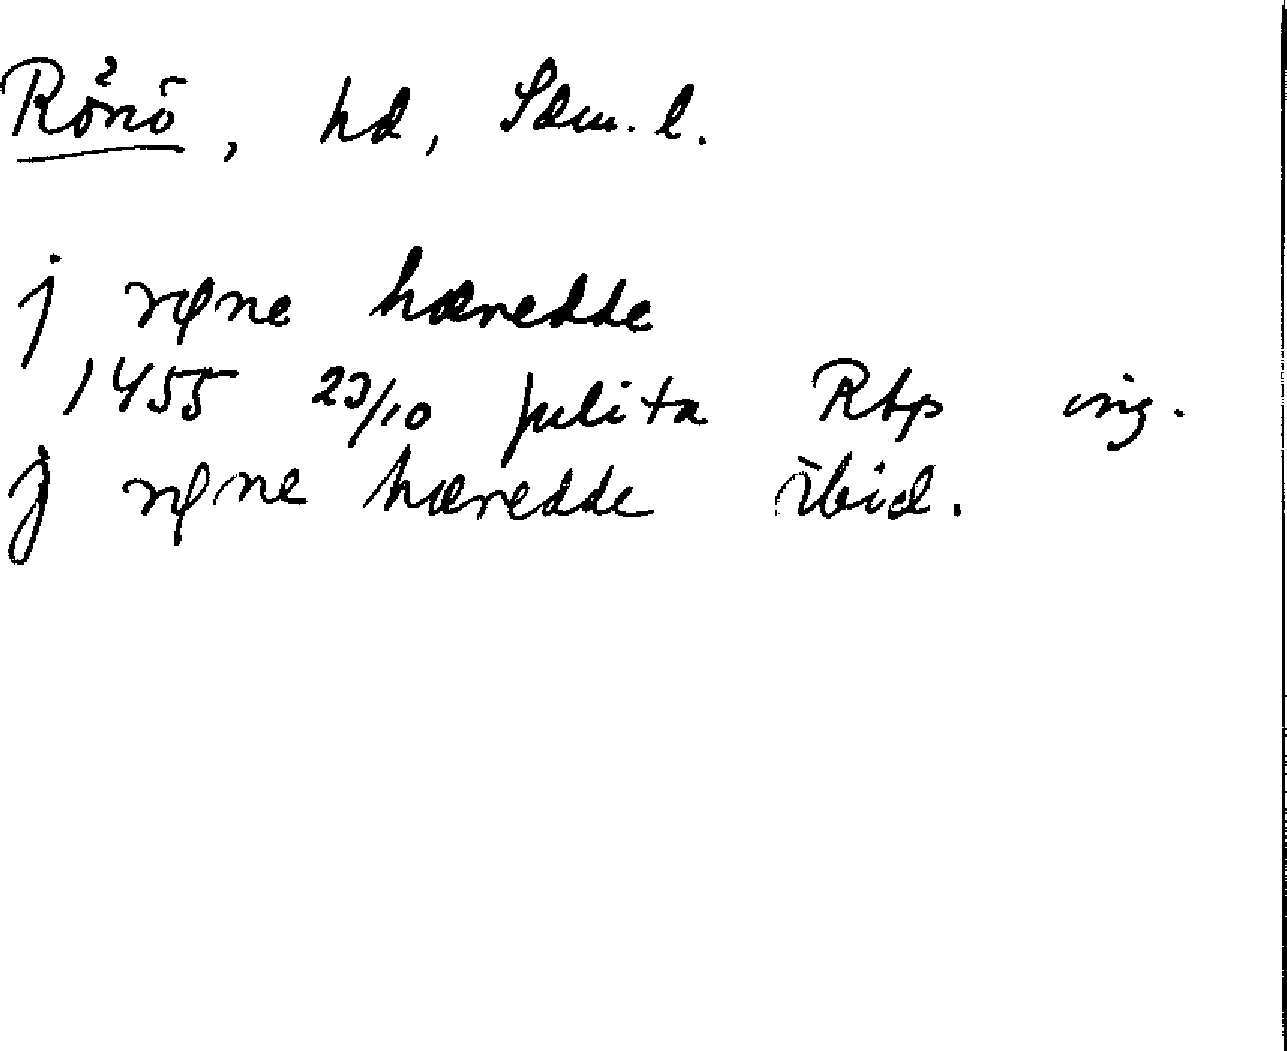 Rönö, hd, Söm. l.
j røne hæredde
1455 23/10 julita Rbp ing.
j røne hæredde ibid.